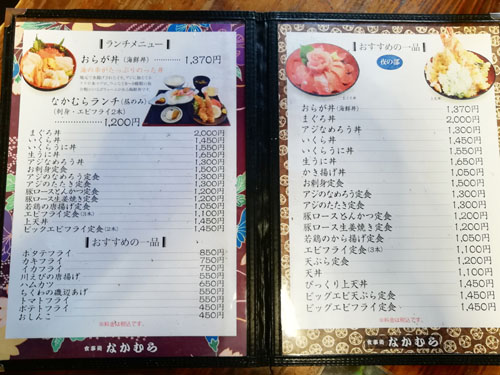 ランチメニュー
おらが丼(海鮮丼) 1,370円
なかむらランチ(昼のみ)
(刺身・エビフライ2本)
1,200円
まぐろ丼 2,000円
いくら丼 1,450円
いくらうに丼 1,550円
生うに丼 1,650円
アジなめろう丼 1,300円
お刺身定食 1,500円
アジのなめろう定食 1,300円
アジのたたき定食 1,300円
豚ロースとんかつ定食 1,200円
豚ロース生姜焼き定食 1,200円
若鶏の唐揚げ定食 1,050円
エビフライ定食(3本) 1,100円
上天丼 1,450円
ビックエビフライ定食(2本) 1,450円
おすすめの一品
ホタテフライ 850円
カキフライ 750円
イカフライ 750円
川えびの唐揚げ 550円
ハムカツ 550円
ちくわの磯辺あげ 550円
トマトフライ 550円
ポテトフライ 450円
おしんこ 450円
※料金は税込です。
食事処 なかむら
おすすめの一品
夜の部
おらが丼(海鮮丼) 1,370円
まぐろ丼 2,000円
アジなめろう丼 1,300円
いくら丼 1,450円
いくらうに丼 1,550円
生うに丼 1,650円
かき揚げ丼 1,050円
お刺身定食 1,500円
アジのなめろう定食 1,300円
アジのたたき定食 1,300円
豚ロースとんかつ定食 1,200円
豚ロース生姜焼き定食 1,200円
若鶏のから揚げ定食 1,050円
エビフライ定食(3本) 1,100円
天ぷら定食 1,200円
天丼 1,200円
びっくり上天丼 1,450円
ビッグエビ天ぷら定食 1,450円
ビッグエビフライ定食 1,450円
※料金は税込です。
食事処 なかむら